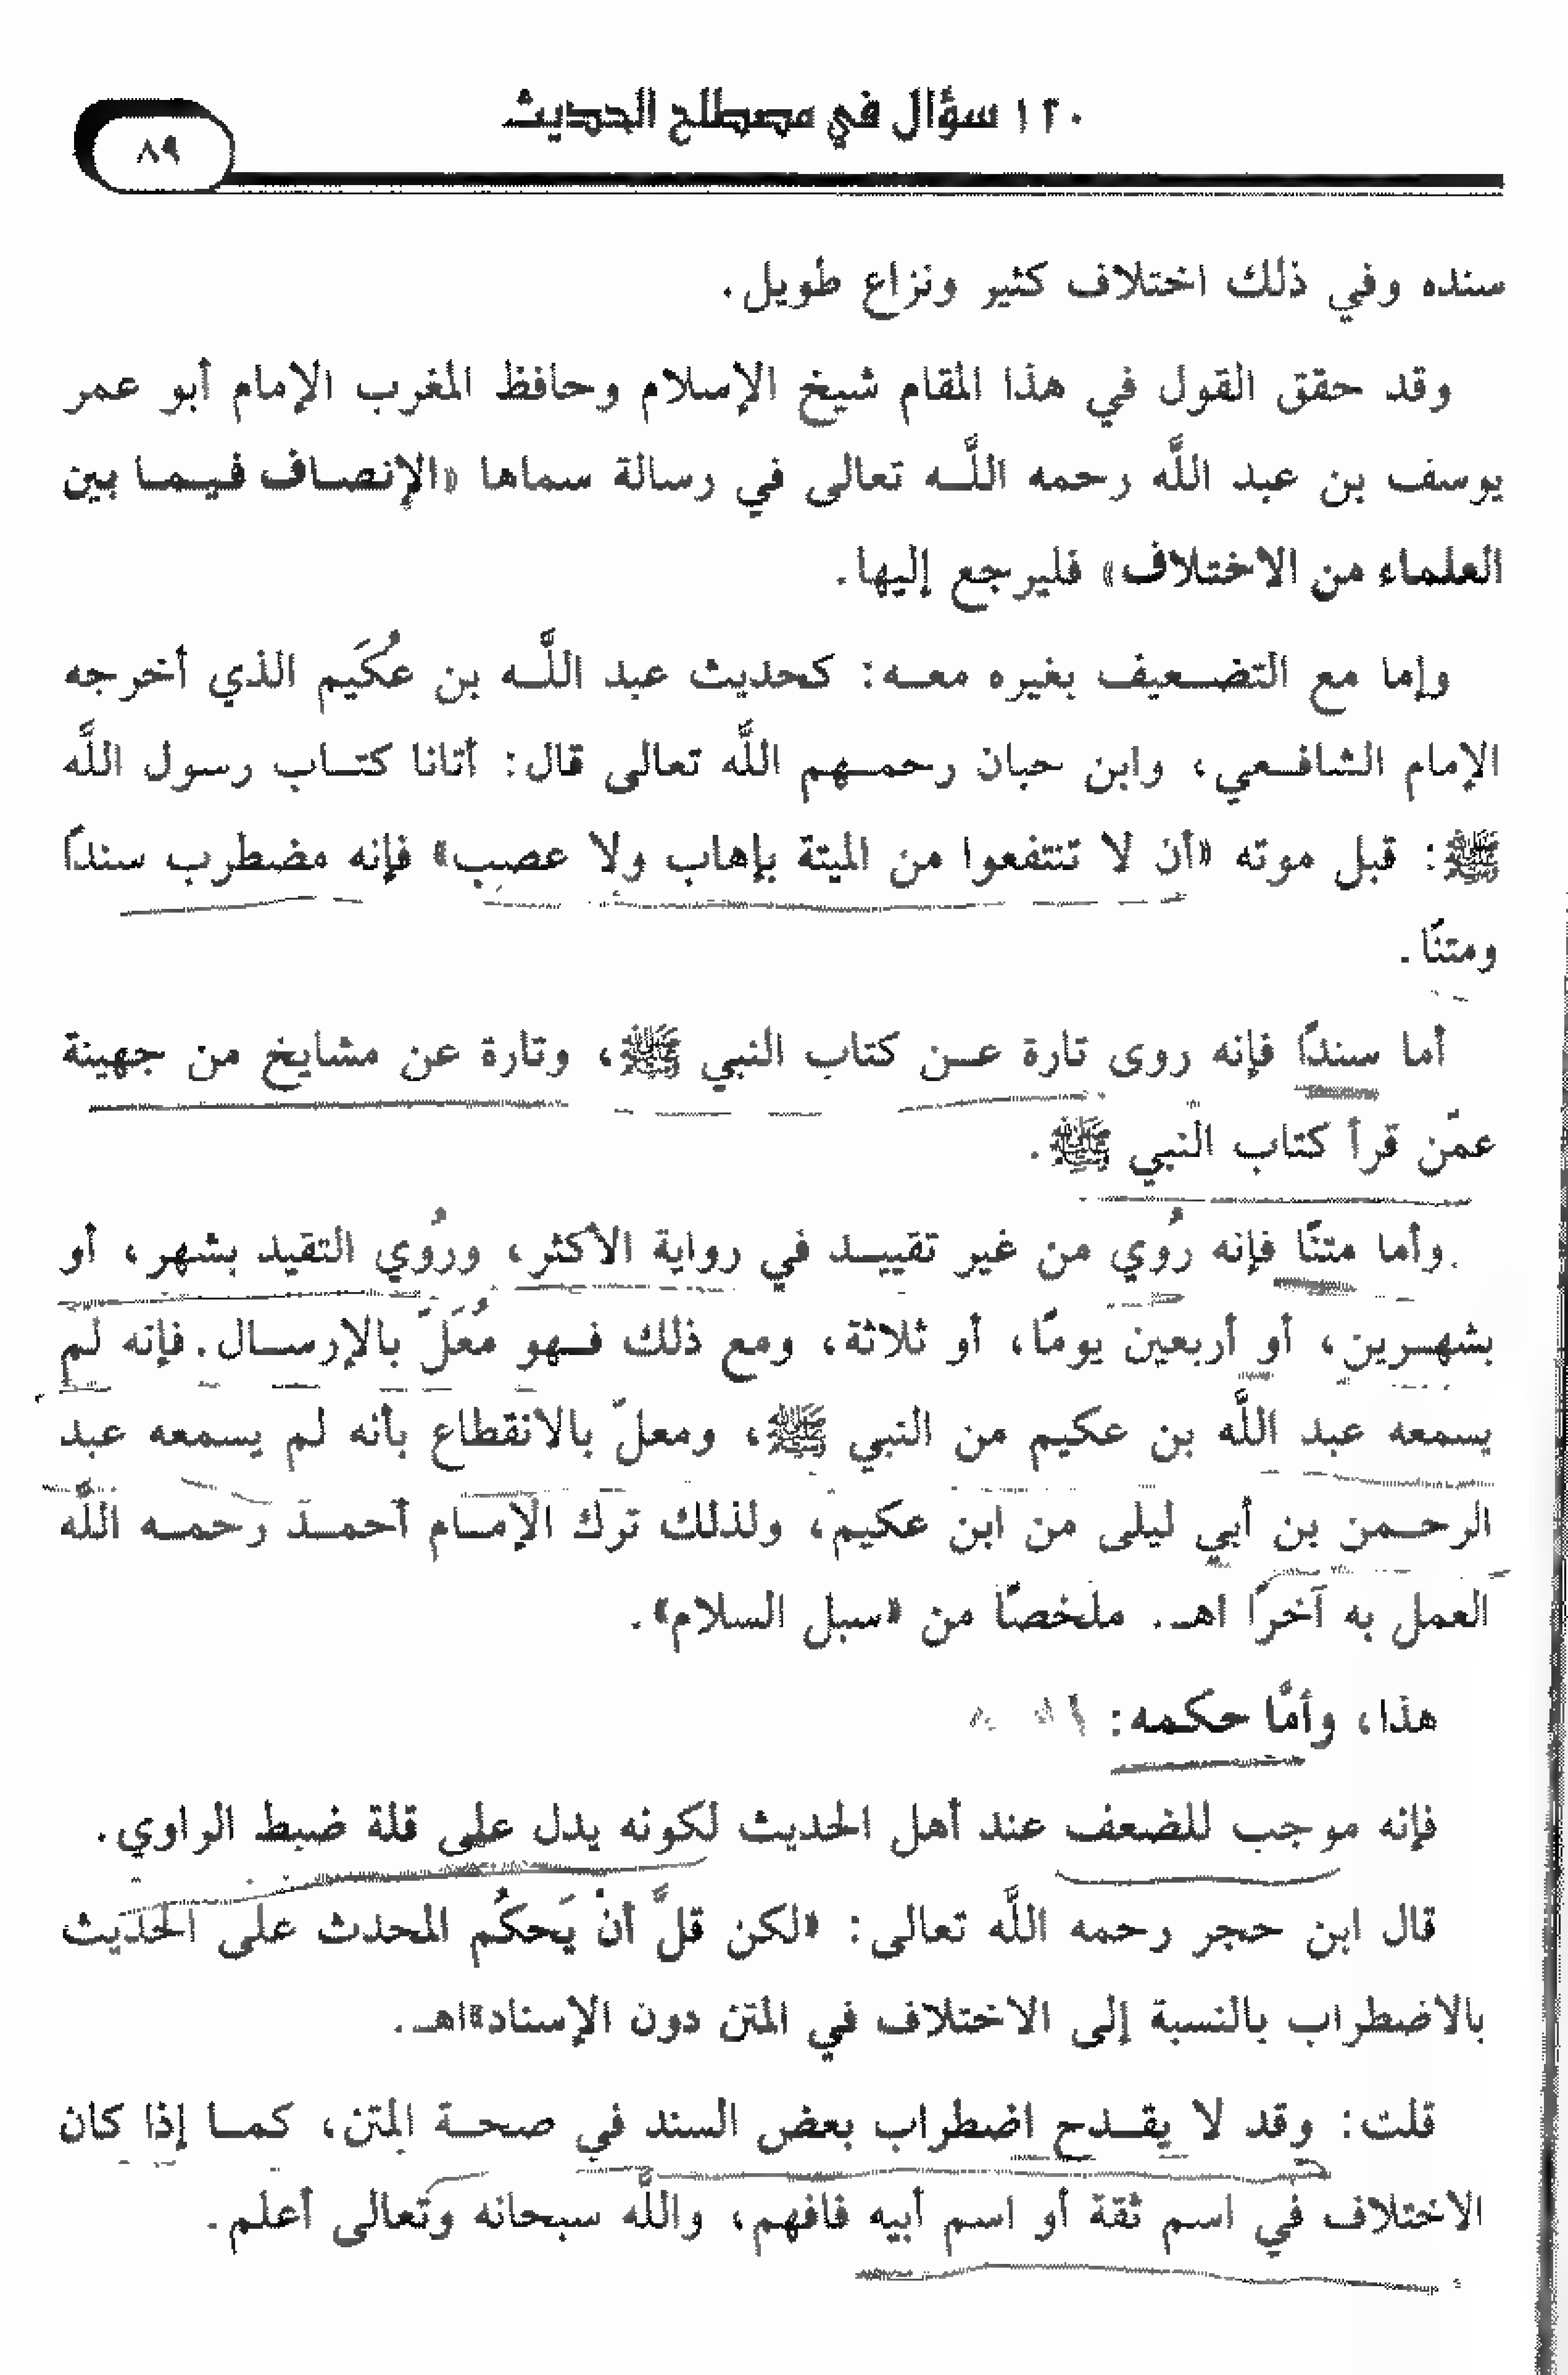 ١٢٠ سؤال في مصطلح الحديث
٨٩
سنده وفي ذلك اختلاف كثير ونزاع طويل.
وقد حقق القول في هذا المقام شيخ الإسلام وحافظ المغرب الإمام أبو عمر
يوسف بن عبد اللَّه رحمه اللَّه تعالى في رسالة سماها «الإنصاف فيما بين
العلماء من الاختلاف» فليرجع إليها.
وإما مع التضعيف بغيره معه: كحديث عبد اللَّه بن عُكَيم الذي أخرجه
الإمام الشافعي، وابن حبان رحمهم اللَّه تعالى قال: أتانا كتاب رسول اللَّه
ﷺ: قبل موته «أن لا تنتفعوا من الميتة بإهاب ولا عصب» فإنه مضطرب سندًا
ومتنًا.
أما سندًا فإنه روى تارة عن كتاب النبي ﷺ، وتارة عن مشايخ من جهينة
عمّن قرأ كتاب النبي ﷺ.
وأما متنًا فإنه رُوي من غير تقييد في رواية الأكثر، ورُوي التقيد بشهر، أو
بشهرين، أو أربعين يومًا، أو ثلاثة، ومع ذلك فهو مُعَلّ بالإرسال. فإنه لم
يسمعه عبد اللَّه بن عكيم من النبي ﷺ، ومعلّ بالانقطاع بأنه لم يسمعه عبد
الرحمن بن أبي ليلى من ابن عكيم، ولذلك ترك الإمام أحمد رحمه اللَّه
العمل به آخرًا اهـ. ملخصًا من «سبل السلام».
هذا، وأمَّا حكمه:
فإنه موجب للضعف عند أهل الحديث لكونه يدل على قلة ضبط الراوي.
قال ابن حجر رحمه اللَّه تعالى: «لكن قلَّ أنْ يَحكُم المحدث على الحديث
بالاضطراب بالنسبة إلى الاختلاف في المتن دون الإسناد»اهـ.
قلت: وقد لا يقدح اضطراب بعض السند في صحة المتن، كما إذا كان
الاختلاف في اسم ثقة أو اسم أبيه فافهم، واللَّه سبحانه وتعالى أعلم.